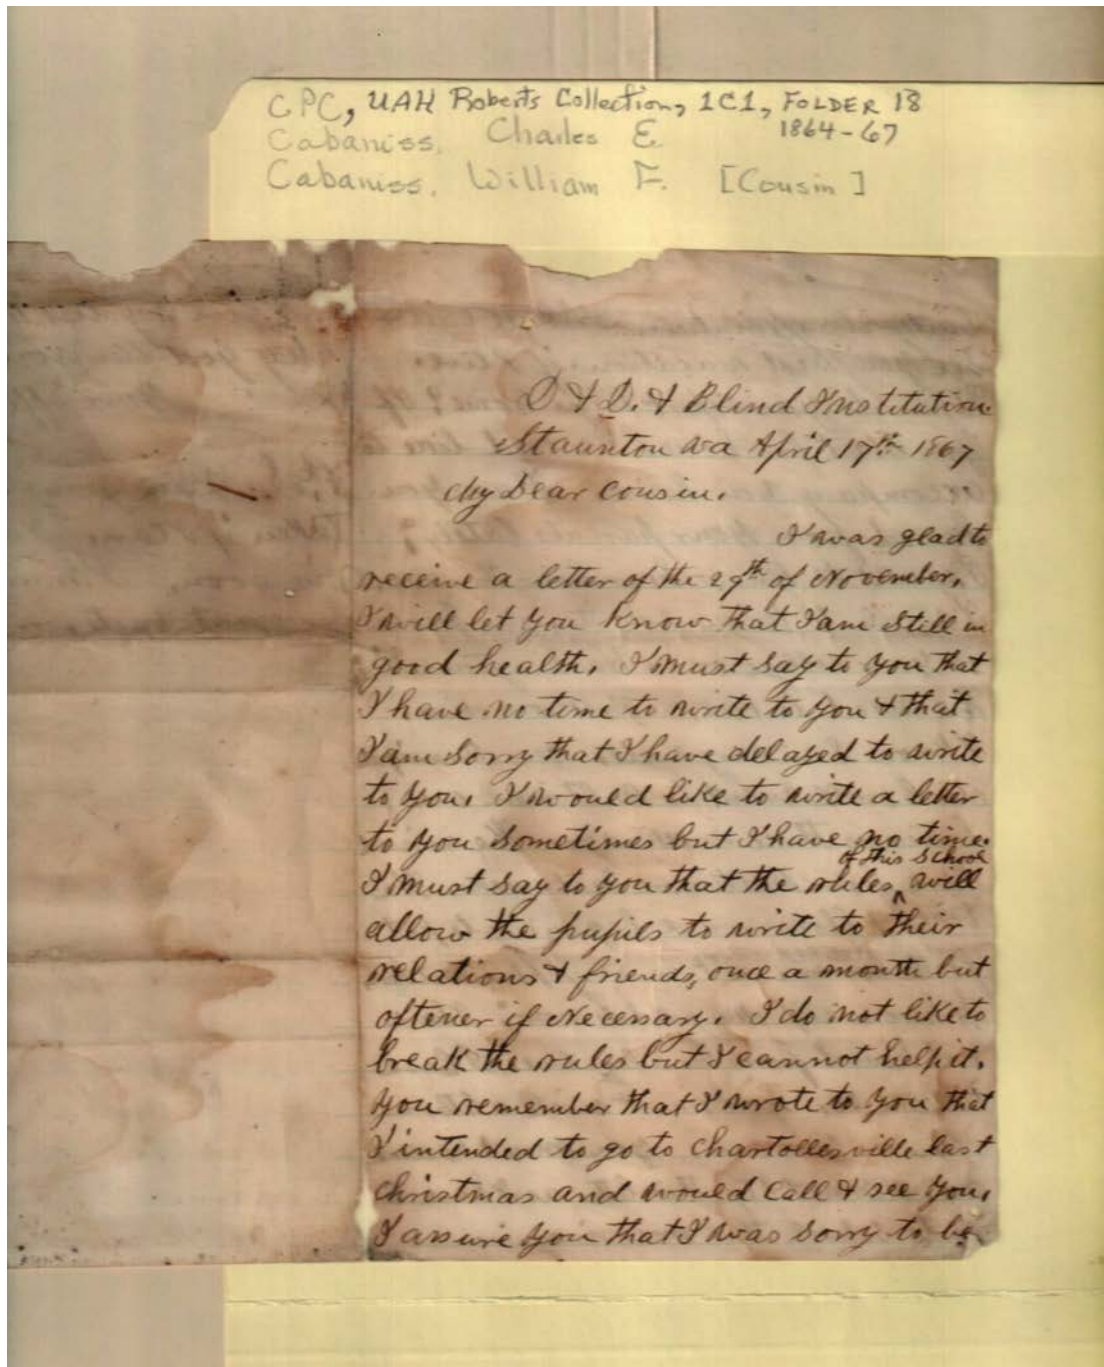 CPC, UAH Roberts Collection, 1C1, FOLDER 18
Cabaniss, Charles E. 1864-67
Cabaniss, William F. [Cousin]
D & D. & Blind Institution
Staunton va April 17th 1867
My Dear Cousin.
I was glad to
receive a letter of the 29th of November,
I will let you know that I am still in
good health, I must say to you that
I have no time to write to you & that
I am sorry that I have delayed to write
to you, I would like to write a letter
to you sometimes but I have no time.
of this school
I must say to you that the rules ^ will
allow the pupils to write to their
relations & friends, once a month but
oftener if Necessary. I do not like to
break the rules but I cannot help it.
you remember that I wrote to you that
I intended to go to Chartollesville last
Christmas and would call & see you,
I assure you that I was sorry to be